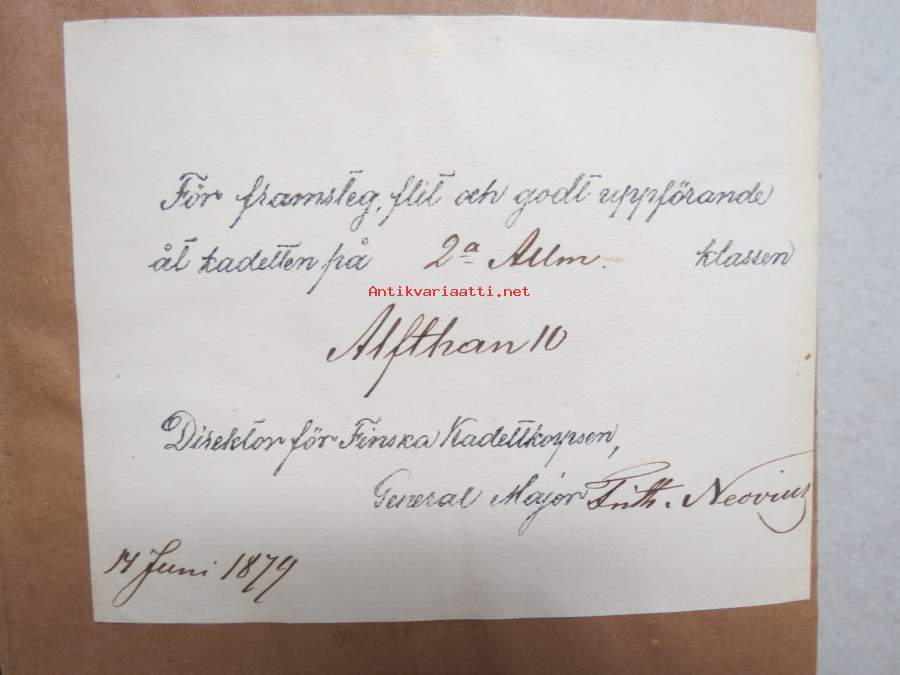 För framsteg, flit och godt uppförande
åt kadetten på 2a Allm. klassen
Antikvariaatti.net
Alfthan 10
Direktor för Finska Kadettkorpsen,
General Major Frith. Neovius
14 Juni 1879